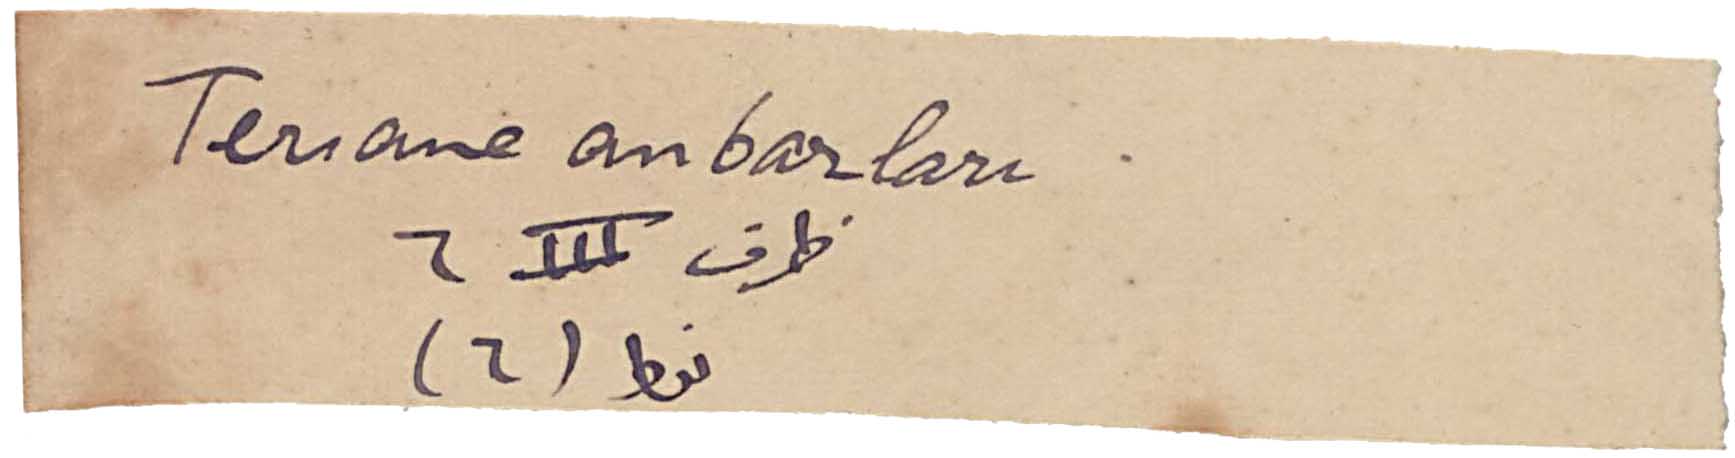 Tersane anbarları
ظرف III ٦
نوط (٦)